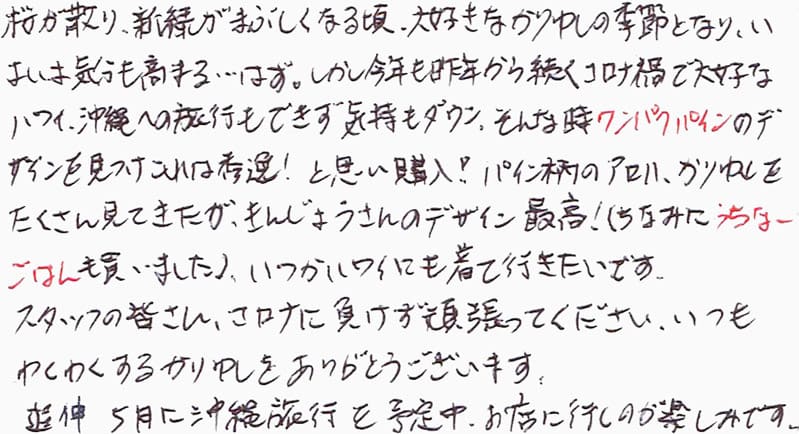 桜が散り、新緑がまぶしくなる頃、大好きなかりゆしの季節となり、い
よいよ気分も高まる…はず。しかし今年も昨年から続くコロナ禍で大好な
ハワイ、沖縄への旅行もできず気持もダウン。そんな時ワンパクパインのデ
ザインを見つけこれは秀逸！と思い購入!! パイン柄のアロハ、かりゆしを
たくさん見てきたが、まんじょうさんのデザイン最高！（ちなみにうちなー
ごはんも買いました）、いつかハワイにも着て行きたいです。
スタッフの皆さん、コロナに負けず頑張ってください、いつも
わくわくするかりゆしをありがとうございます。
追伸 5月に沖縄旅行を予定中、お店に行くのが楽しみです。